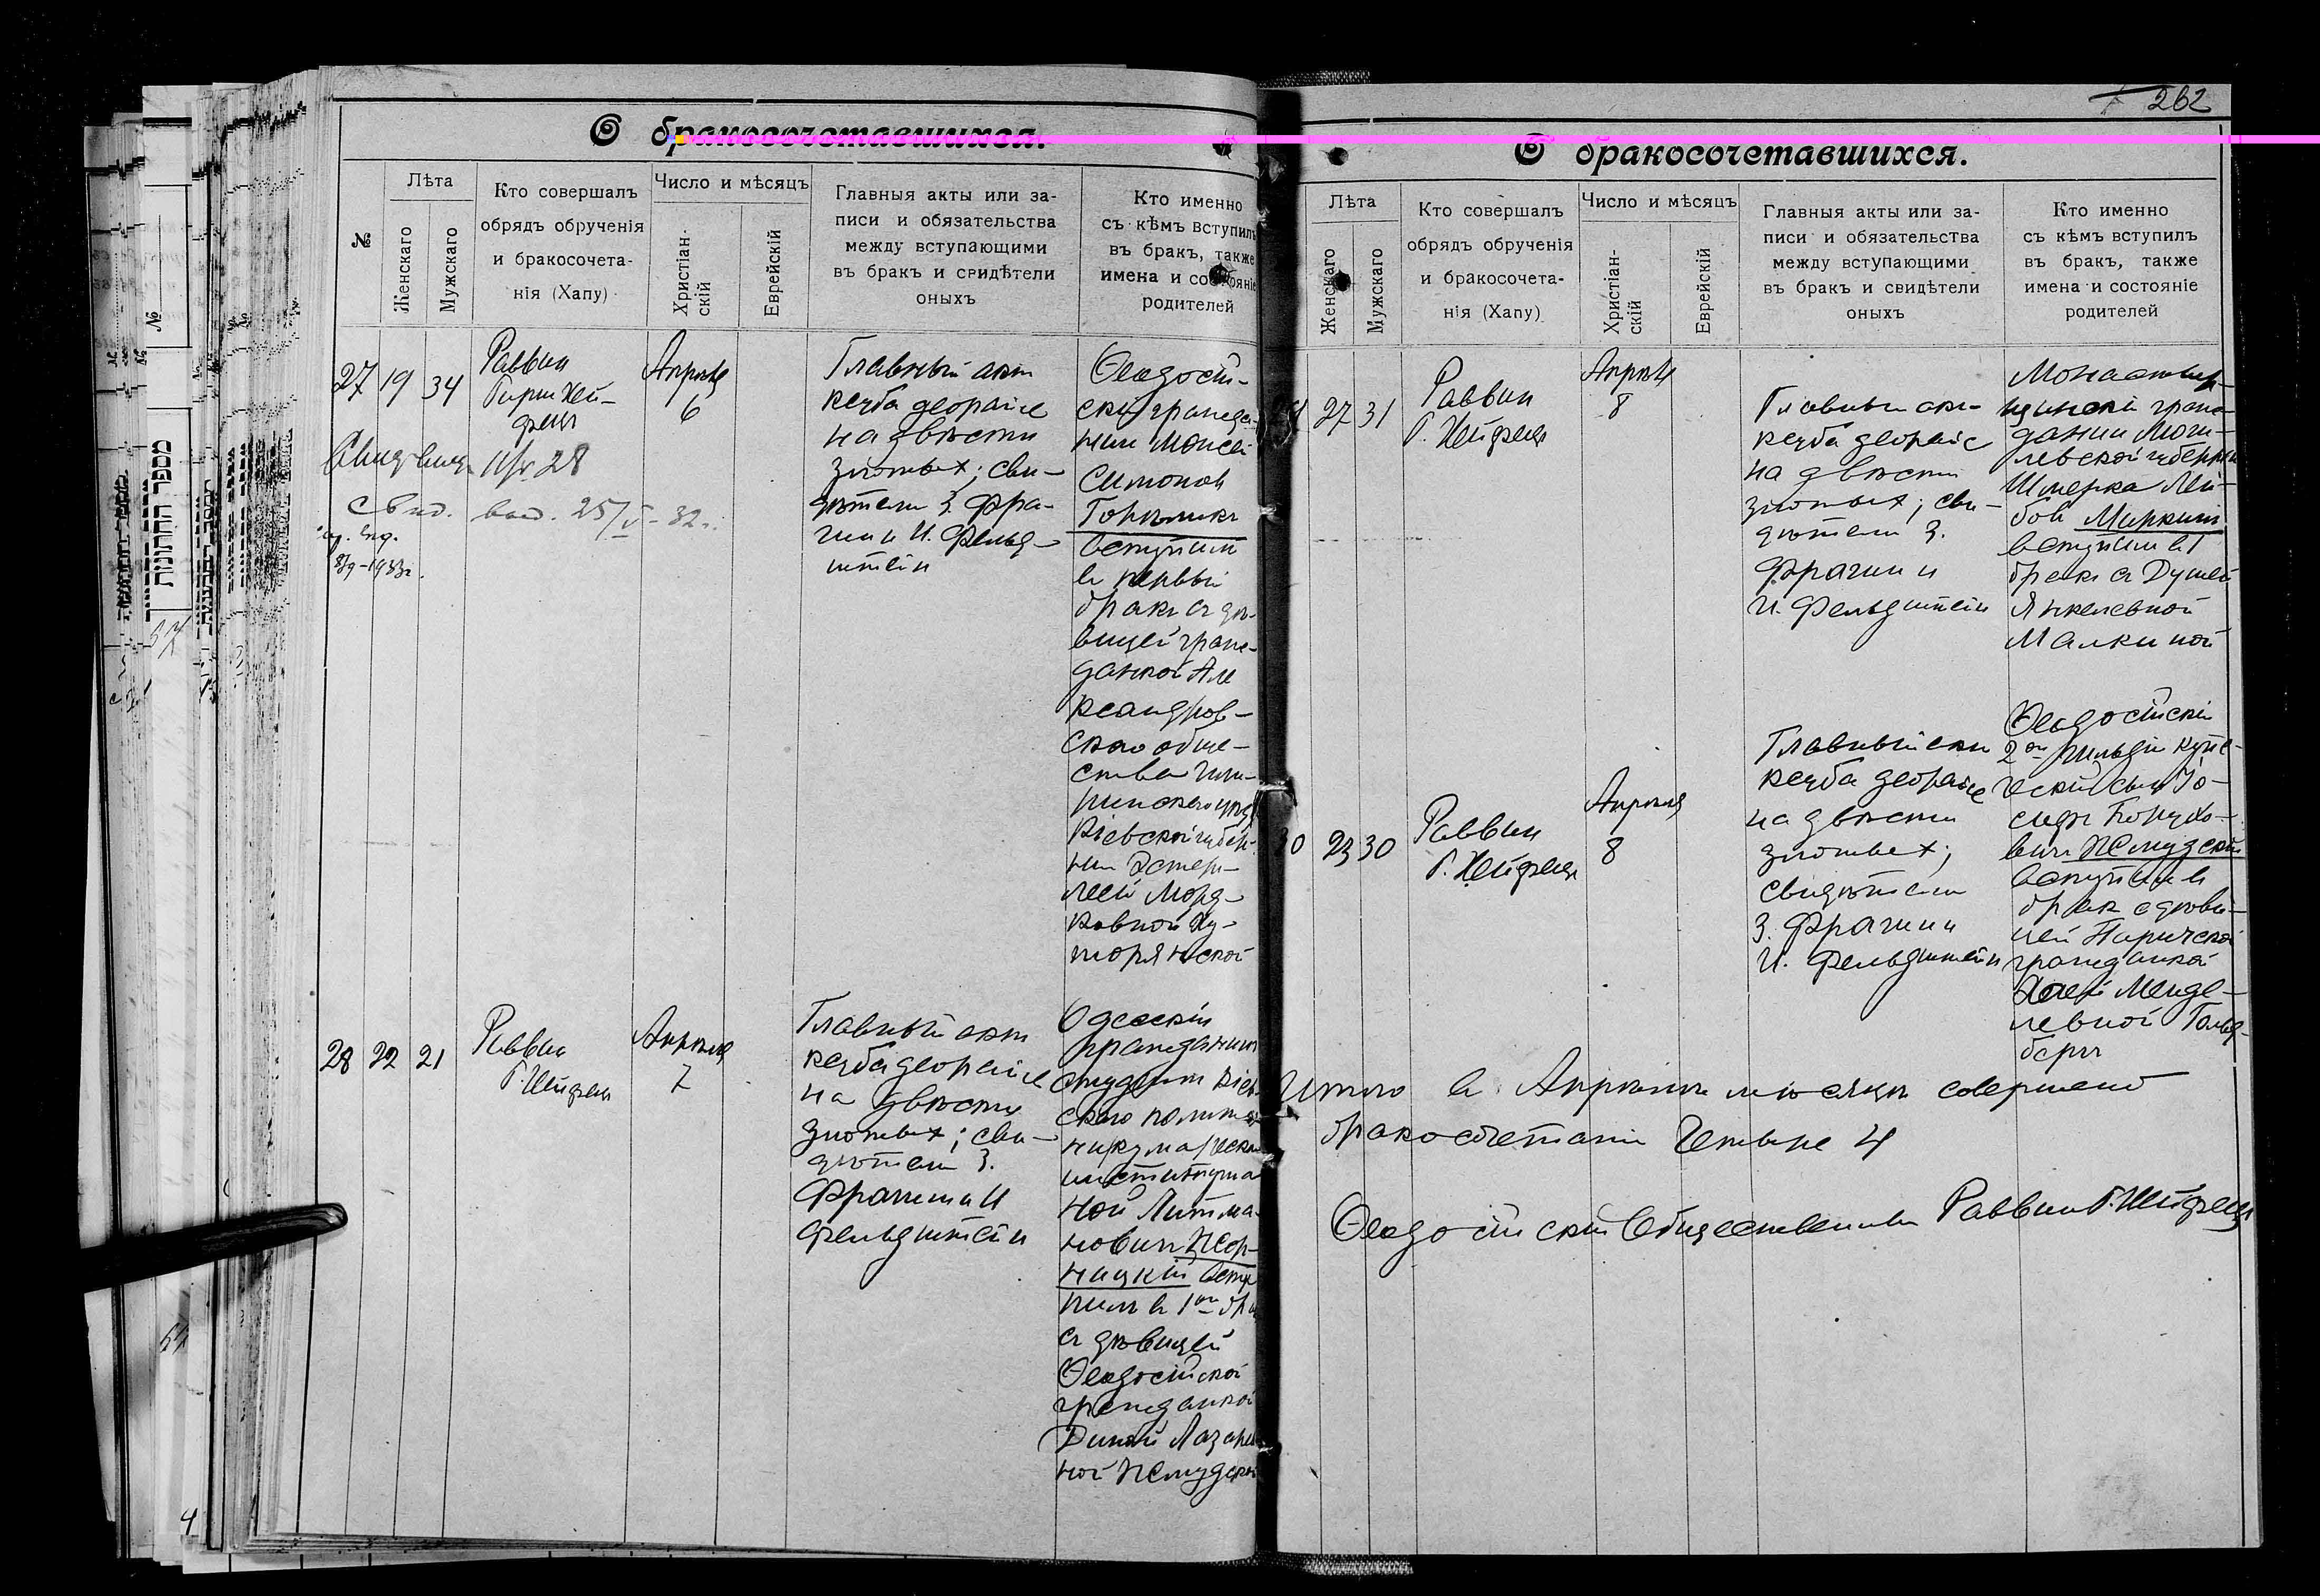 262
О бракосочетавшихся.
№
Лѣта
Женскаго
Мужскаго
Кто совершалъ
обрядъ обрученія
и бракосочета-
нія (Хапу)
Число и мѣсяцъ
Христіан-
скій
Еврейскій
Главныя акты или за-
писи и обязательства
между вступающими
въ бракъ и свидѣтели
оныхъ
Кто именно
съ кѣмъ вступилъ
въ бракъ, также
имена и состояніе
родителей
27
19
34
Раввин
Гирш Хей-
фец
Апрѣля
6
Главный акт
кесуба деорайсе
на двѣсти
злотых; сви-
дѣтели З. Фра-
гин и И. Фельд-
штейн
Ѳеодосій-
скій гражда-
нин Моисей
Симонов
Горѣликъ
вступил
в первый
бракъ съ дѣ-
вицей граж-
данкой Але
ксандров-
скаго обще-
ства Чиги-
ринскаго уѣз.
Кіевской губер-
ніи Эстер-
леей Морд-
ковной Ху-
торянской
№ 28
Свид. выд. 25/V-32г.
28
22
21
Раввин
Г. Хейфец
Апрѣля
7
Главный акт
кесуба деорайсе
на двѣсти
злотых; сви-
дѣтели З.
Фрагин и И
Фельдштейн
Одесскій
гражданин
студент Кіев-
скаго
института
Ной Литма-
нович Жор-
ницкій всту
пил в 1ый бра
съ дѣвицей
Ѳеодосійской
гражданкой
Диной Лазарев
ной Жмудской
О бракосочетавшихся.
Лѣта
Женскаго
Мужскаго
Кто совершалъ
обрядъ обрученія
и бракосочета-
нія (Хапу)
Число и мѣсяцъ
Христіан-
скій
Еврейскій
Главныя акты или за-
писи и обязательства
между вступающими
въ бракъ и свидѣтели
оныхъ
Кто именно
съ кѣмъ вступилъ
въ бракъ, также
имена и состояніе
родителей
27
31
Раввин
Г. Хейфец
Апрѣля
8
Главный акт
кесуба деорайсе
на двѣсти
злотых; сви-
дѣтели З.
Фрагин и
И. Фельдштейн
Монастыр-
щинскій граж-
данин Моги-
левской губерніи
Шмерка Лей-
бов Миркин
вступил в 1
бракъ съ Душей
Янкелевной
Малкиной
30
23
30
Раввин
Г. Хейфец
Апрѣля
8
Главный акт
кесуба деорайсе
на двѣсти
злотых;
свидѣтели
З. Фрагин и
И. Фельдштейн
Ѳеодосійскій
2ой гильдіи купе-
ческій сын Іо-
сифъ Борухо-
вич Жмудскій
вступил в
бракъ с дѣви-
цей Паричской
гражданкой
Хаей Менде-
левной Гольд-
берг
Итого в Апрѣлѣ мѣсяцѣ совершено
бракосочетаній Четыре 4
Ѳеодосійскій Общественный Раввин Г. Хейфец
מספר החתונות